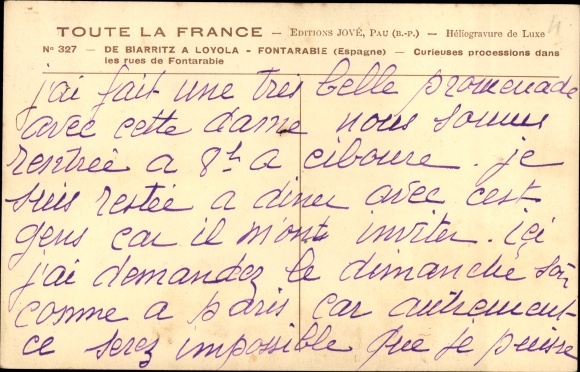 TOUTE LA FRANCE — EDITIONS JOVÉ, PAU (B.-P.) — Héliogravure de Luxe
No 327 — DE BIARRITZ A LOYOLA - FONTARABIE (Espagne) — Curieuses processions dans
les rues de Fontarabie
j'ai fait une tres belle promenade
avec cette dame nous somms
rentrée a 8h a ciboure. je
suis restée a diner avec cest
gens car il m'ont inviter. içi
j'ai demandez le dimanche soir
comme a paris car autrement
ce serez impossible que je puisse